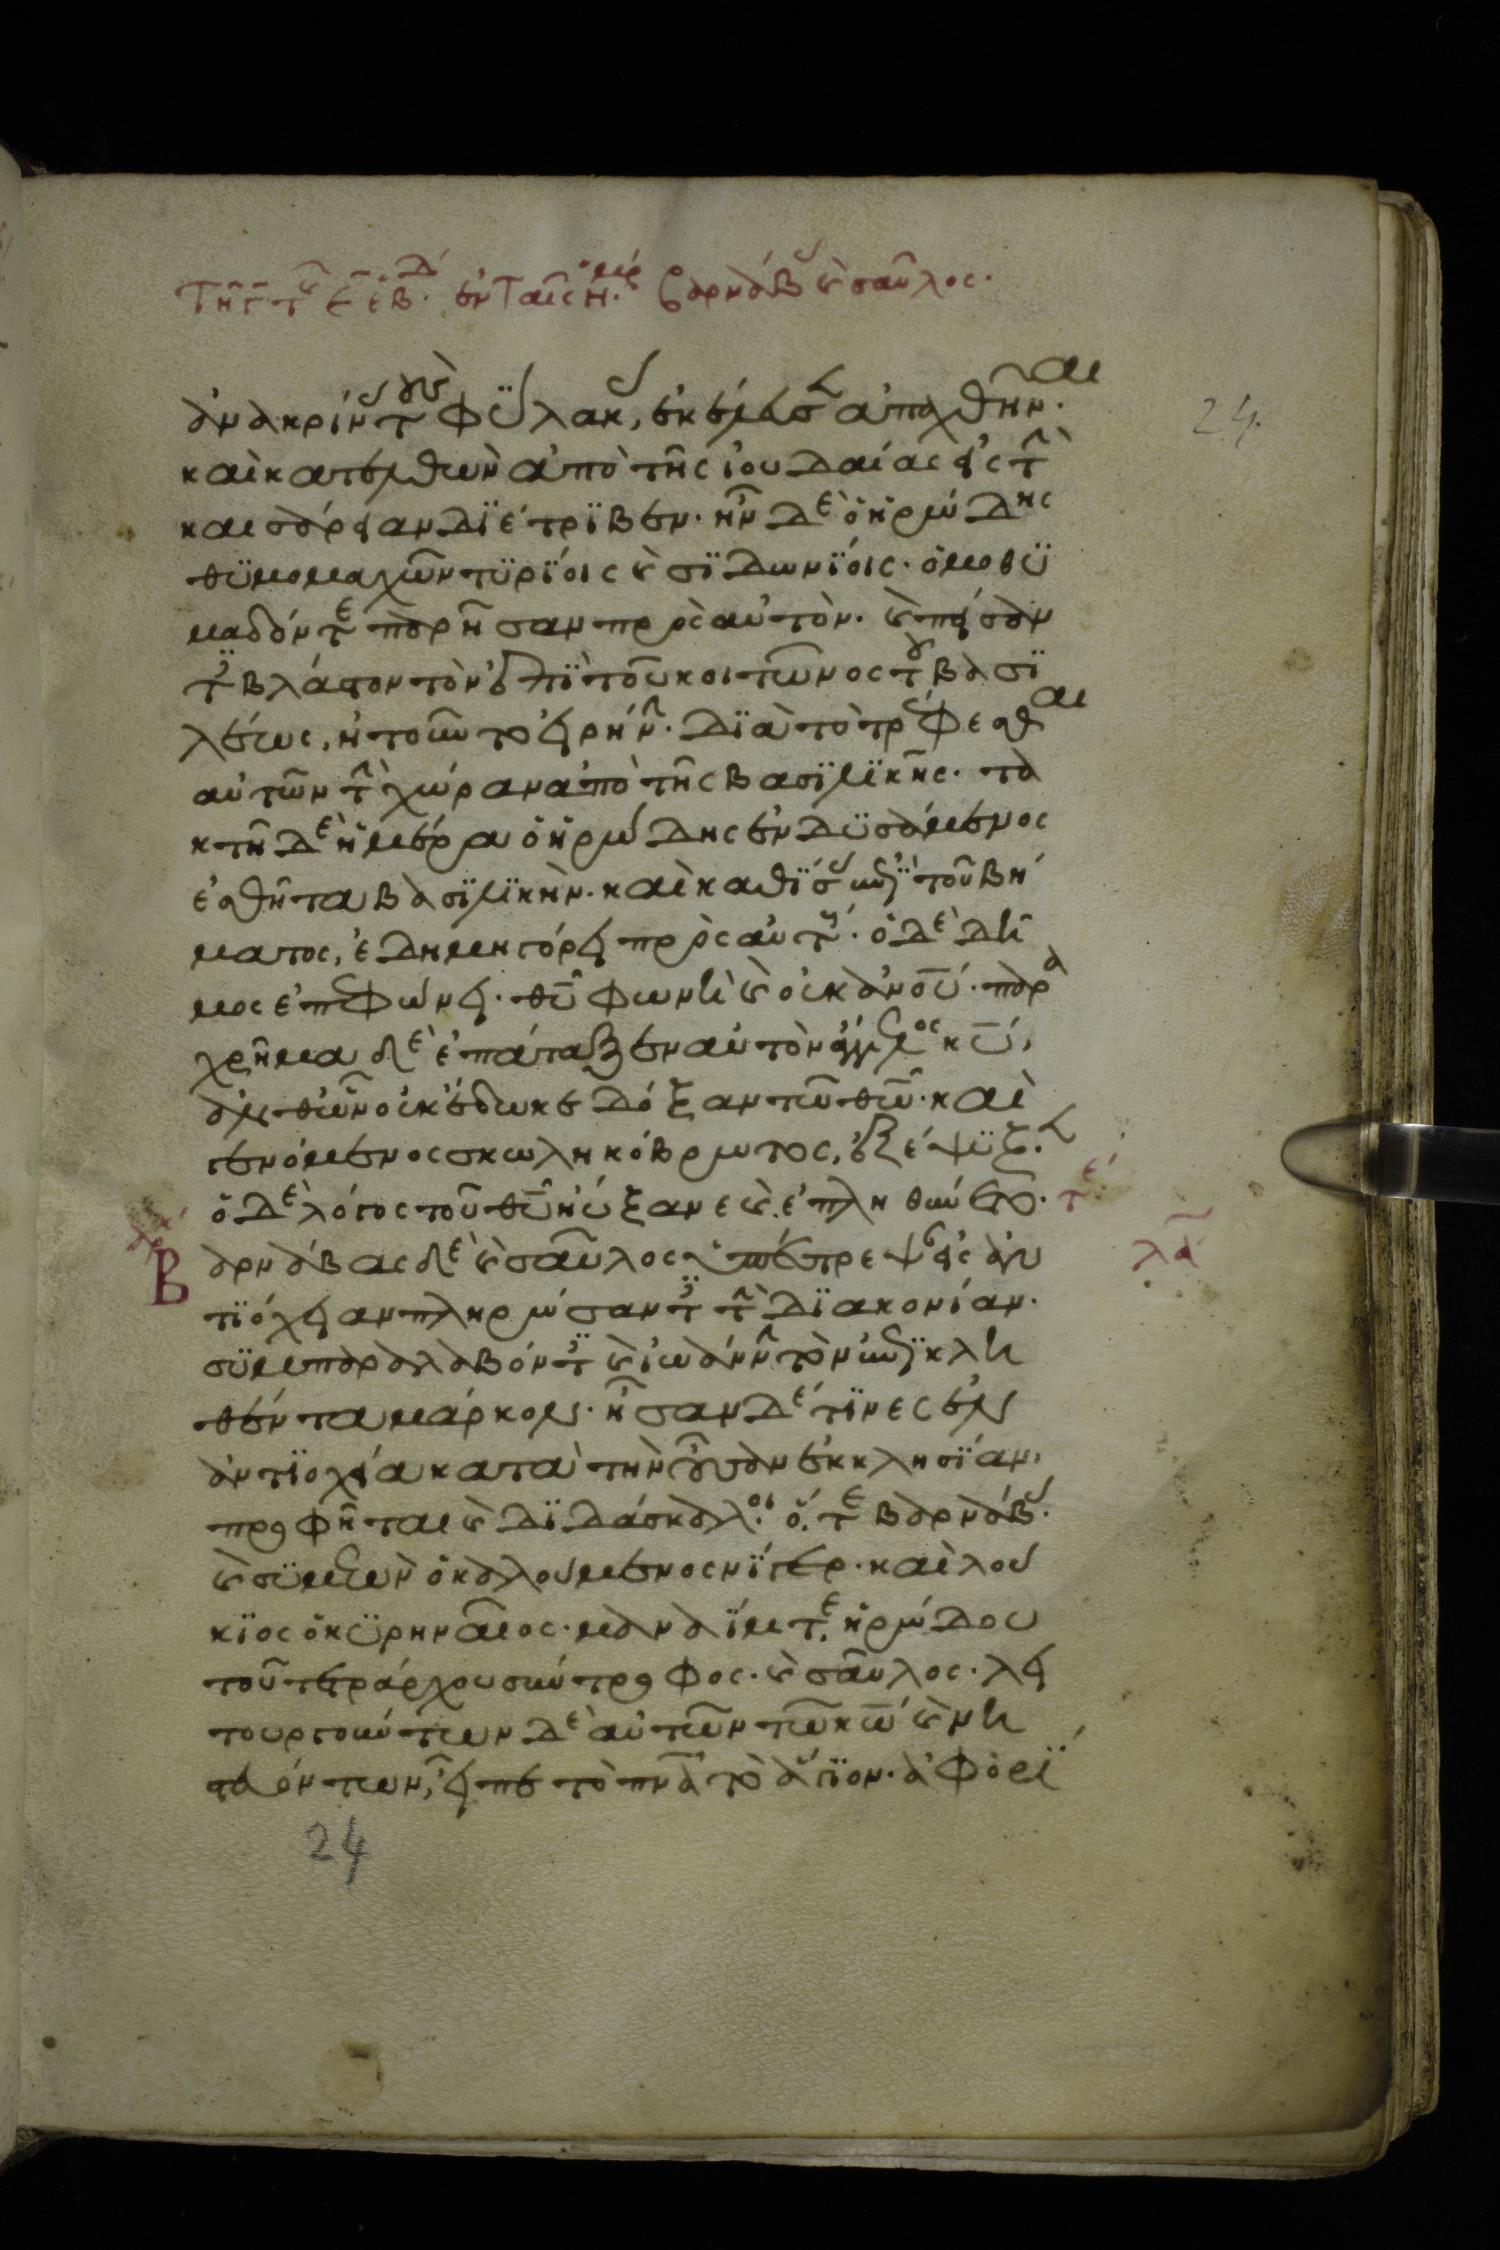 Τῇ ϛ τ ἑβδ. ἐν ταῖς ἡμέρ βαρνάβας καὶ σαῦλος.
ἀνακρίνας τοὺς φϋλακας, ἐκέλευσεν ἀπαχθῆναι.
24.
καὶ κατελθὼν ἀπὸ τῆς ἰουδαίας εἰς τὴν
καισάρειαν διέτριβεν. ἦν δὲ ὁ ἡρώδης
θϋμομαχῶν τϋρϊοις καὶ σϊδωνϊοις. ὁμοθϋ
μαδόν τε παρῆσαν πρὸς αὐτὸν. καὶ πείσαν
τες βλάστον τὸν ἐπὶ τοῦ κοιτῶνος τοῦ βασϊ
λέως, ἠτοῦντο εἰρήνην. διὰ τὸ τρέφεσθαι
αὐτῶν τὴν χώραν ἀπὸ τῆς βασϊλϊκῆς. τα
κτῇ δὲ ἡμέρα ὁ ἡρώδης ἐνδϋσάμενος
ἐσθῆτα βασϊλϊκὴν. καὶ καθϊσας ἐπὶ τοῦ βή
ματος, ἐδημηγόρει πρὸς αὐτούς. ὁ δὲ δῆ
μος ἐπεφώνει. θῦ φωνὴ καὶ οὐκ ἀνοῦ. παρα
χρῆμα δὲ ἐπάταξεν αὐτὸν ἄγγελος κῦ,
ἀνθ' ὧν οὐκ ἔδωκε δόξαν τῶ θῶ. καὶ
γενόμενος σκωληκόβρωτος, ἐξέψϋξεν.
ὁ δὲ λόγος τοῦ θῦ ηὔξανε καὶ ἐπληθύνετο. τε
Β αρνάβας δὲ καὶ σαῦλος ὑπέστρεψαν εἰς ἀν
λα
τϊόχειαν πληρώσαντες τὴν δϊακονίαν.
σϋμπαραλαβόντες καὶ ἰωάννην τὸν ἐπϊκλη
θέντα μάρκον. ἦσαν δέ τϊνες ἐν
ἀντϊοχεία κατὰ τὴν οὖσαν ἐκκλησϊαν,
προφῆται καὶ δϊδάσκαλοι. ὅ, τε βαρνάβας.
καὶ σϋμεὼν ὁ καλούμενος νϊγερ. καὶ λού
κϊος ὁ κϋρηναῖος. μαναϊν τε, ἡρώδου
τοῦ τετράρχου σύντροφος. καὶ σαῦλος. λει
τουργούντων δὲ αὐτῶν τῶ κῶ καὶ νη
στευόντων, εἶπε τὸ πνᾶ τὸ ἅγϊον. ἀφορϊ
24